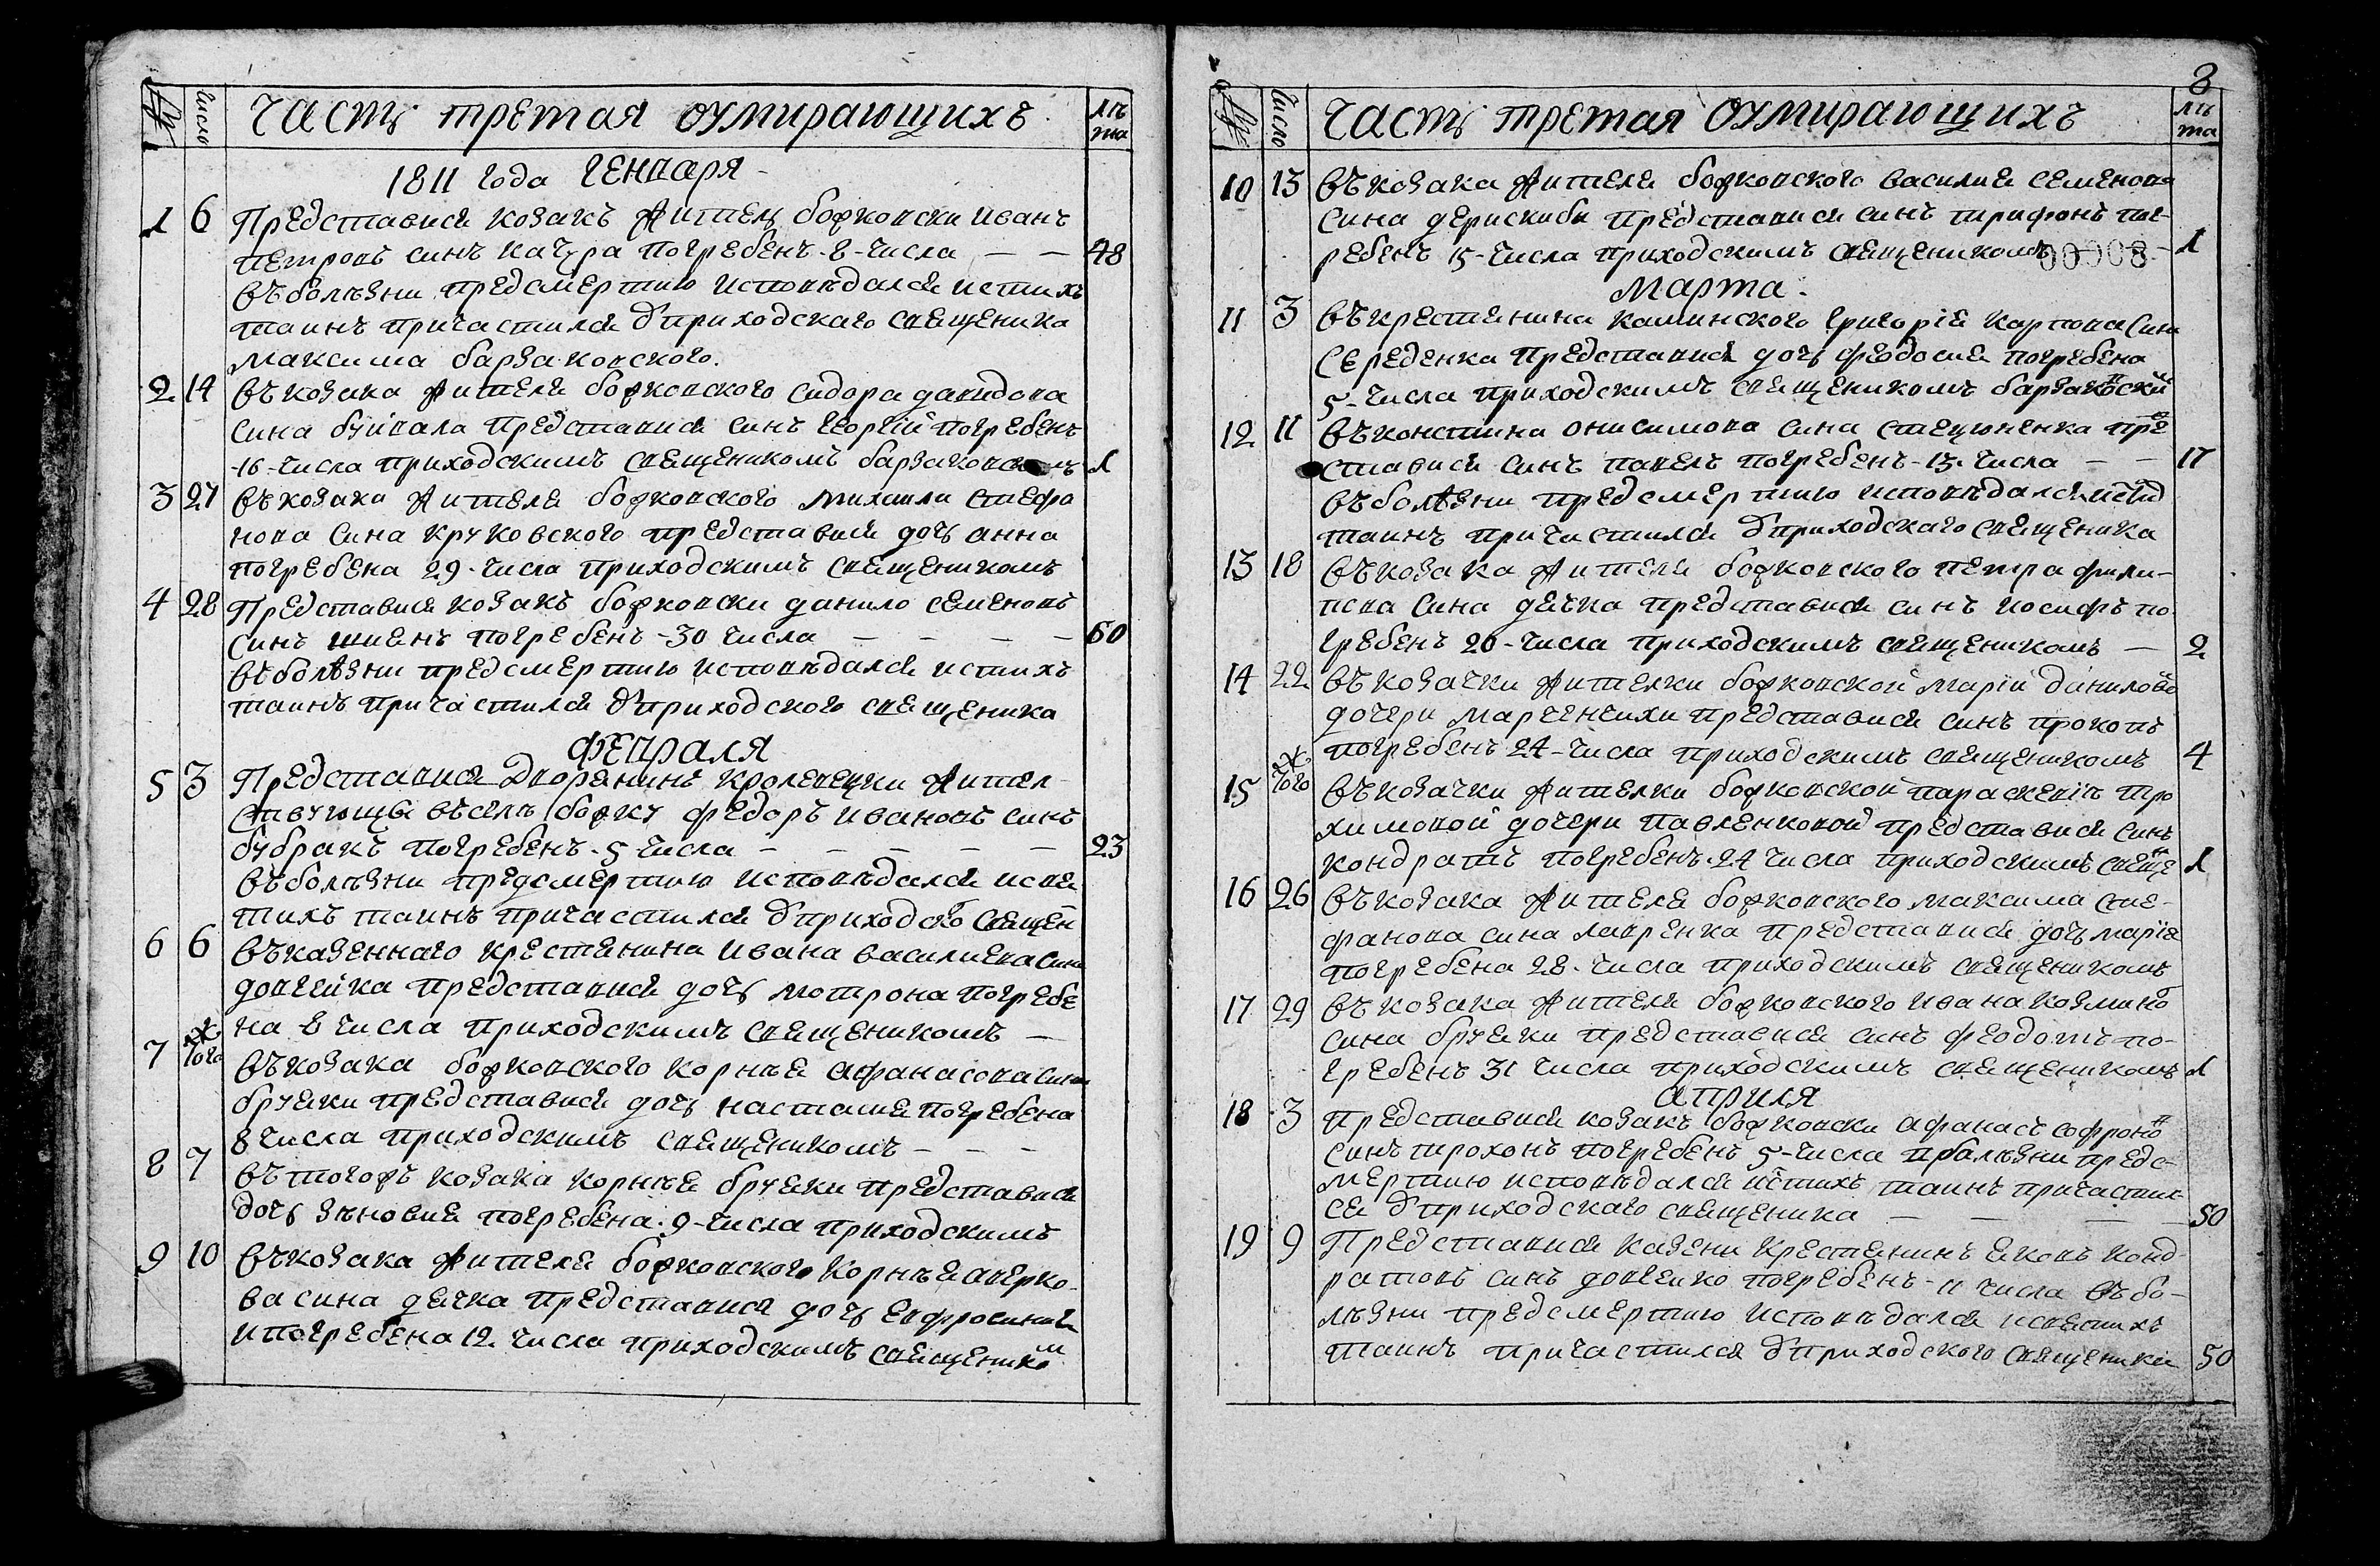 № Число Часть третая оумирающихъ лѣта
1811 года Генваря
1 6 Представися козакъ житель божковски иванъ
петровъ синъ качура погребенъ 8 числа — — 48
въ болѣзни предсмертию исповѣдался и с тихъ
таинъ причастился ѿ приходскаго священика
максима барзаковского
2 14 въ козака жителя божковского сидора давидова
сина буйвала представися синъ георгий погребенъ
-16- числа приходскимъ священикомъ 1
3 27 въ козака жителя божковского михаила стефа
нова сина круковского представися дочь анна
погребена 29 числа приходскимъ священикомъ
4 28 Представися козакъ божковски данило семеновъ
синъ шиянъ погребенъ -30 числа — — — — 60
въ болѣзни предсмертию исповѣдался и с тихъ
таинъ причастился ѿ приходского священика
Февраля
5 3 Представися дворянинъ кролевецки жител
ствующы въ селѣ божку федоръ ивановъ синъ
бубракъ погребенъ 5 числа — — — — — 23
въ болѣзни предсмертию исповѣдался и свя
тихъ таинъ причастился ѿ приходско священ
6 6 въ казеннаго крестянина ивана василиева сина
довгейка представися дочь мотрона погребе
на 8 числа приходскимъ священикомъ —
7 тогож въ козака божковского корнѣя афанасова сина
бруяки представися дочь настасия погребена
8 числа приходскимъ священикомъ — — —
8 7 въ тогожъ козака корнѣя бруяки представися
дочь зѣновия погребена 9 числа приходскимъ
9 10 въ козака жителя божковского корнѣя аверко
ва сина дячка представися дочь евфросиния
и погребена 12 числа приходскимъ священиком
8
№ Число Часть третая оумирающихъ лѣта
10 13 въ козака жителя божковского василия семенова
сина дерискиби представися синъ трифонъ пог-
ребенъ 15 числа приходскимъ священикомъ 00008 1
Марта
11 3 въ крестянина каминского григорія карпова сина
середенка представися дочь феодосия погребена
5 числа приходскимъ священикомъ барзаковски
12 11 въ онисимова сина стецюненка пред
ставися синъ павелъ погребенъ -13- числа — — 17
въ болѣзни предсмертию исповѣдался
таинъ причастился ѿ приходскаго священика
13 18 въ козака жителя божковского петра фили-
пова сина дячка представися синъ иосифъ по
гребенъ 20 числа приходскимъ священикомъ — 2
14 22 въ козачки жителки божковской маріи данилово
дочери марченчихи представися синъ прокопъ
погребенъ 24 числа приходскимъ священикомъ 4
15 тогож въ козачки жителки божковской параскевіи тро
химовой дочери павленковой представися синъ
кондратъ погребенъ 24 числа приходскимъ свяще 1
16 26 въ козака жителя божковского максима сте-
фанова сина лавренка представися дочь марія
погребена 28 числа приходскимъ священикомъ
17 29 въ козака жителя божковского ивана козмино
сина бруяки представися синъ феодотъ по-
гребенъ 31 числа приходскимъ священикомъ 1
Априля
18 3 Представися козакъ божковски афанасъ софроно
синъ трохонъ погребенъ 5 числа предс-
мертию исповѣдался и с тихъ таинъ причастил
ся ѿ приходскаго священика — — — — 50
19 9 Представися казени крестянинъ яковъ конд-
ратовъ синъ довгейко погребенъ 11 числа въ бо-
лѣзни предсмертию исповѣдался и святихъ
таинъ причастился ѿ приходского священика 50